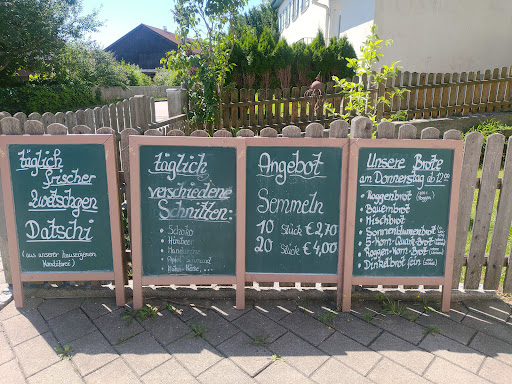 täglich
frischer
Zwetschgen
Datschi
(aus unserer hauseigenen
Konditorei)
täglich
verschiedene
Schnitten:
- Schoko
- Himbeer
- Mandarine
- Apfel Schmand
- Käse, ...
Angebot
Semmeln
10 Stück € 2,70
20 Stück € 4,00
Unsere Brote
am Donnerstag ab
- Roggenbrot
- Bauernbrot
- Mischbrot
- Sonnenblumenbrot
- 5-Korn-Quark-Brot
- Roggen-Korn-Brot
- Dinkelbrot